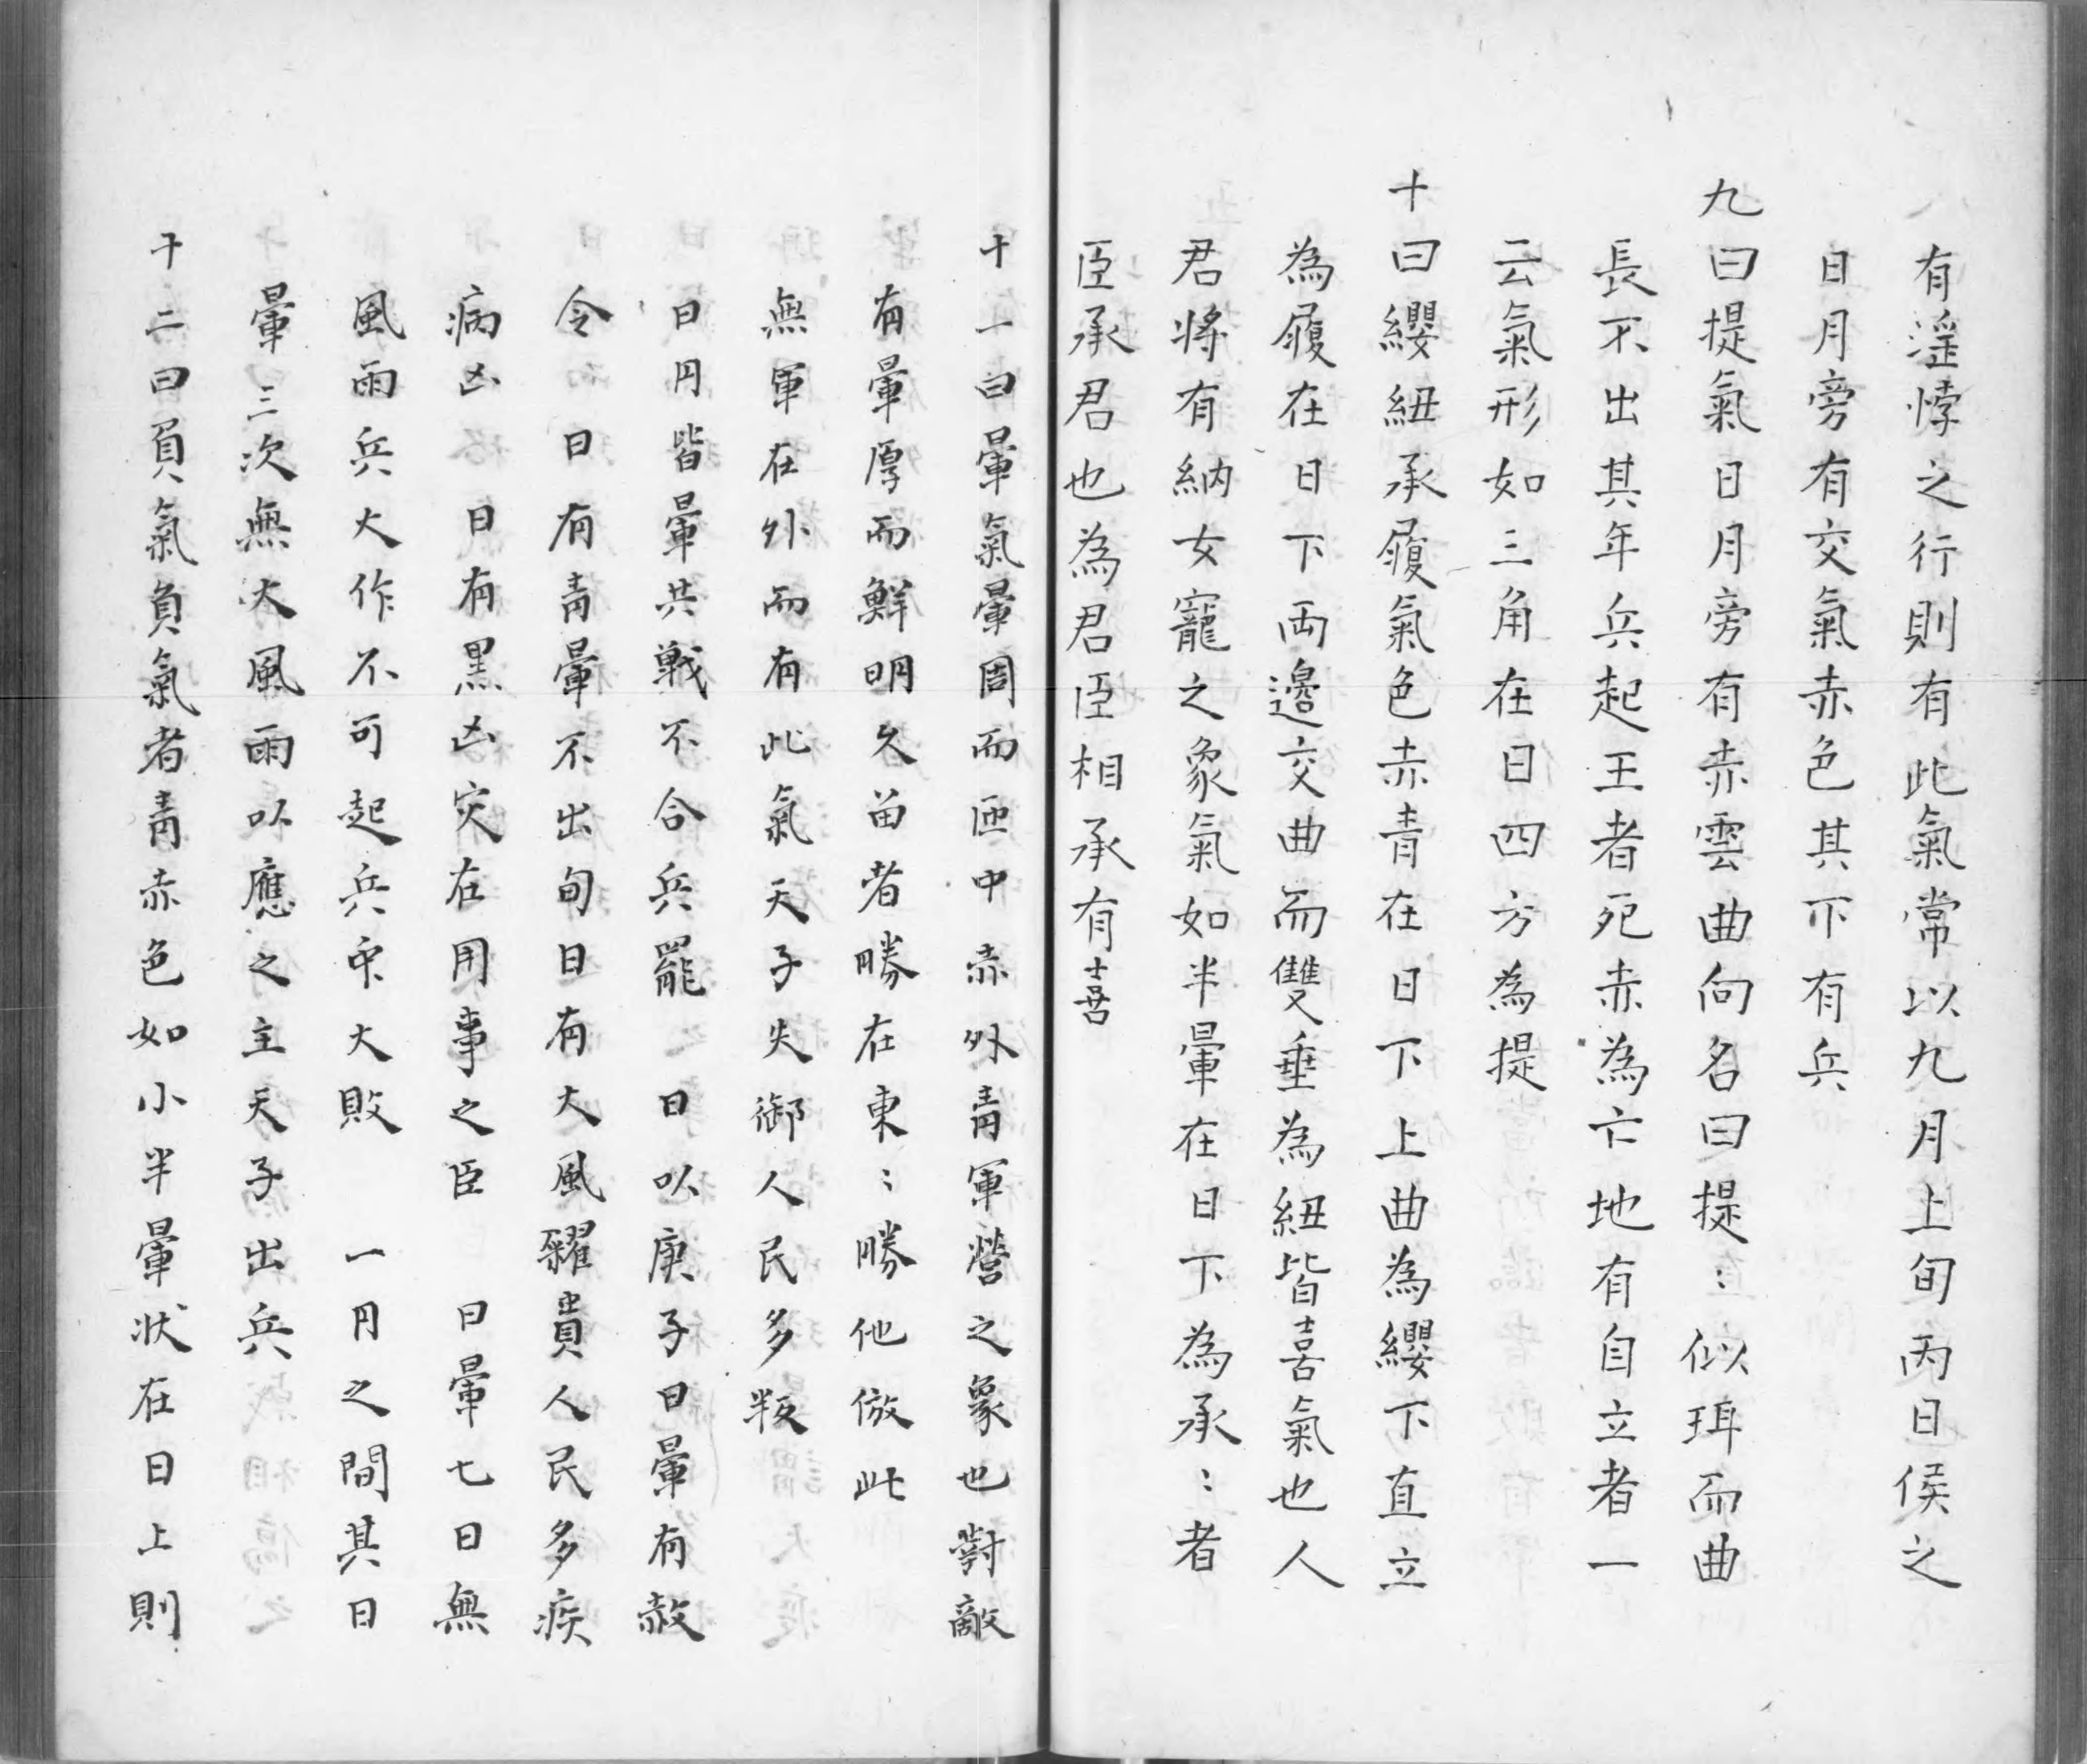 有滛悖之行則有此氣常以九月上旬丙日侯之
日月旁有交氣赤色其下有兵
九曰提氣日月旁有赤雲曲向名曰提〻似珥而曲
長不出其年兵起王者死赤為亡地有自立者一
云氣形如三角在日四方為提
十曰纓紐承履氣色赤青在日下上曲為纓下直立
為履在日下両邉交曲而雙垂為紐皆喜氣也人
君将有納女寵之象氣如半暈在日下為承〻者
臣承君也為君臣相承有喜
十一曰暈氣暈周而匝中赤外青軍營之象也對敵
有暈厚而鮮明久畄者勝在東〻勝他倣此
無軍在外而有此氣天子失御人民多叛
日月皆暈共戦不合兵罷 日以庚子日暈有赦
令 日有青暈不出旬日有大風糴貴人民多疾
病凶 日有黑凶灾在用事之臣 日暈七日無
風雨兵大作不可起兵衆大敗 一月之間其日
暈三次無大風雨以應之主天子出兵
十二曰負氣負氣者青赤色如小半暈状在日上則